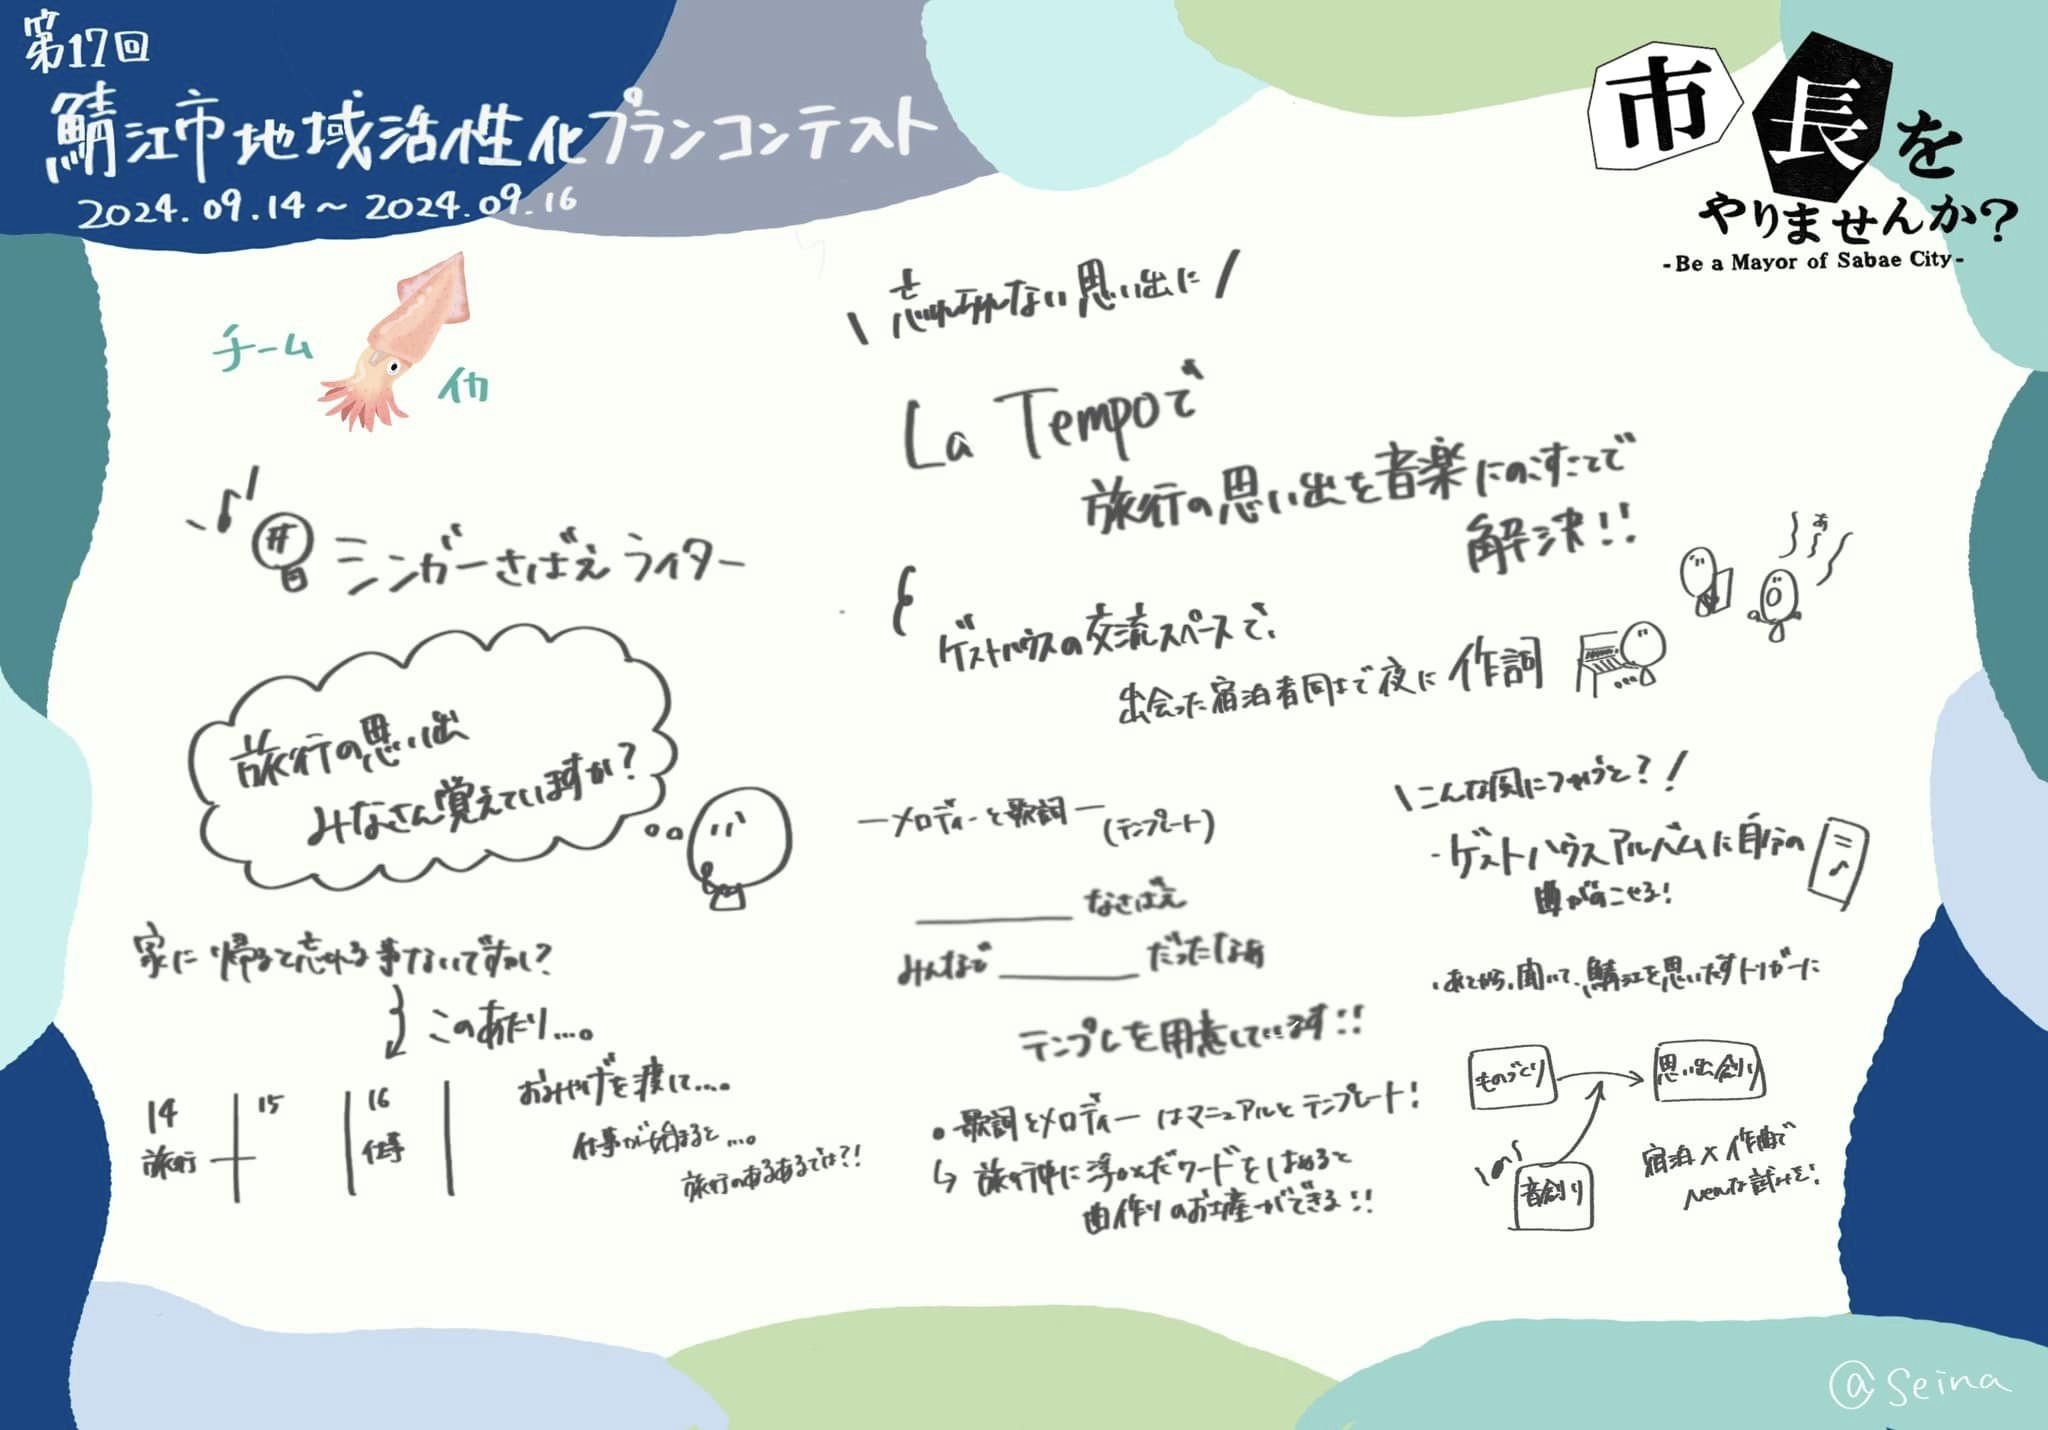 第17回
鯖江市地域活性化プランコンテスト
2024.09.14～2024.09.16
市長を
やりませんか？
-Be a Mayor of Sabae City-
チーム
イカ
シンガーさばえライター
旅行の思い出
みなさん覚えていますか？
家に帰ると忘れる事ないですか？
このあたり…。
14
15
16
旅行
仕事
おみやげを渡して…。
仕事が始まると…。
旅行のあるあるでは?!
\ 忘れられない思い出に /
La Tempoで
旅行の思い出を音楽にのこすことで
解決!!
ゲストハウスの交流スペースで、
出会った宿泊者同士で夜に作詞
あ
ーメロディーと歌詞ー
(テンプレート)
＿＿＿＿なさばえ
みんなで＿＿＿＿だったなぁ
テンプレを用意しています!!
。歌詞とメロディーはマニュアルとテンプレート!
↳ 旅行中に浮かんだワードをはめると
曲作りのお土産ができる!!
\こんな風につかうと?/
・ゲストハウスアルバムに自分の
曲がのこせる!
・あとから、聞いて、鯖江を思いだすトリガーに
ものづくり
思い出創り
音創り
宿泊×作曲で
Newな試みを!
@seina